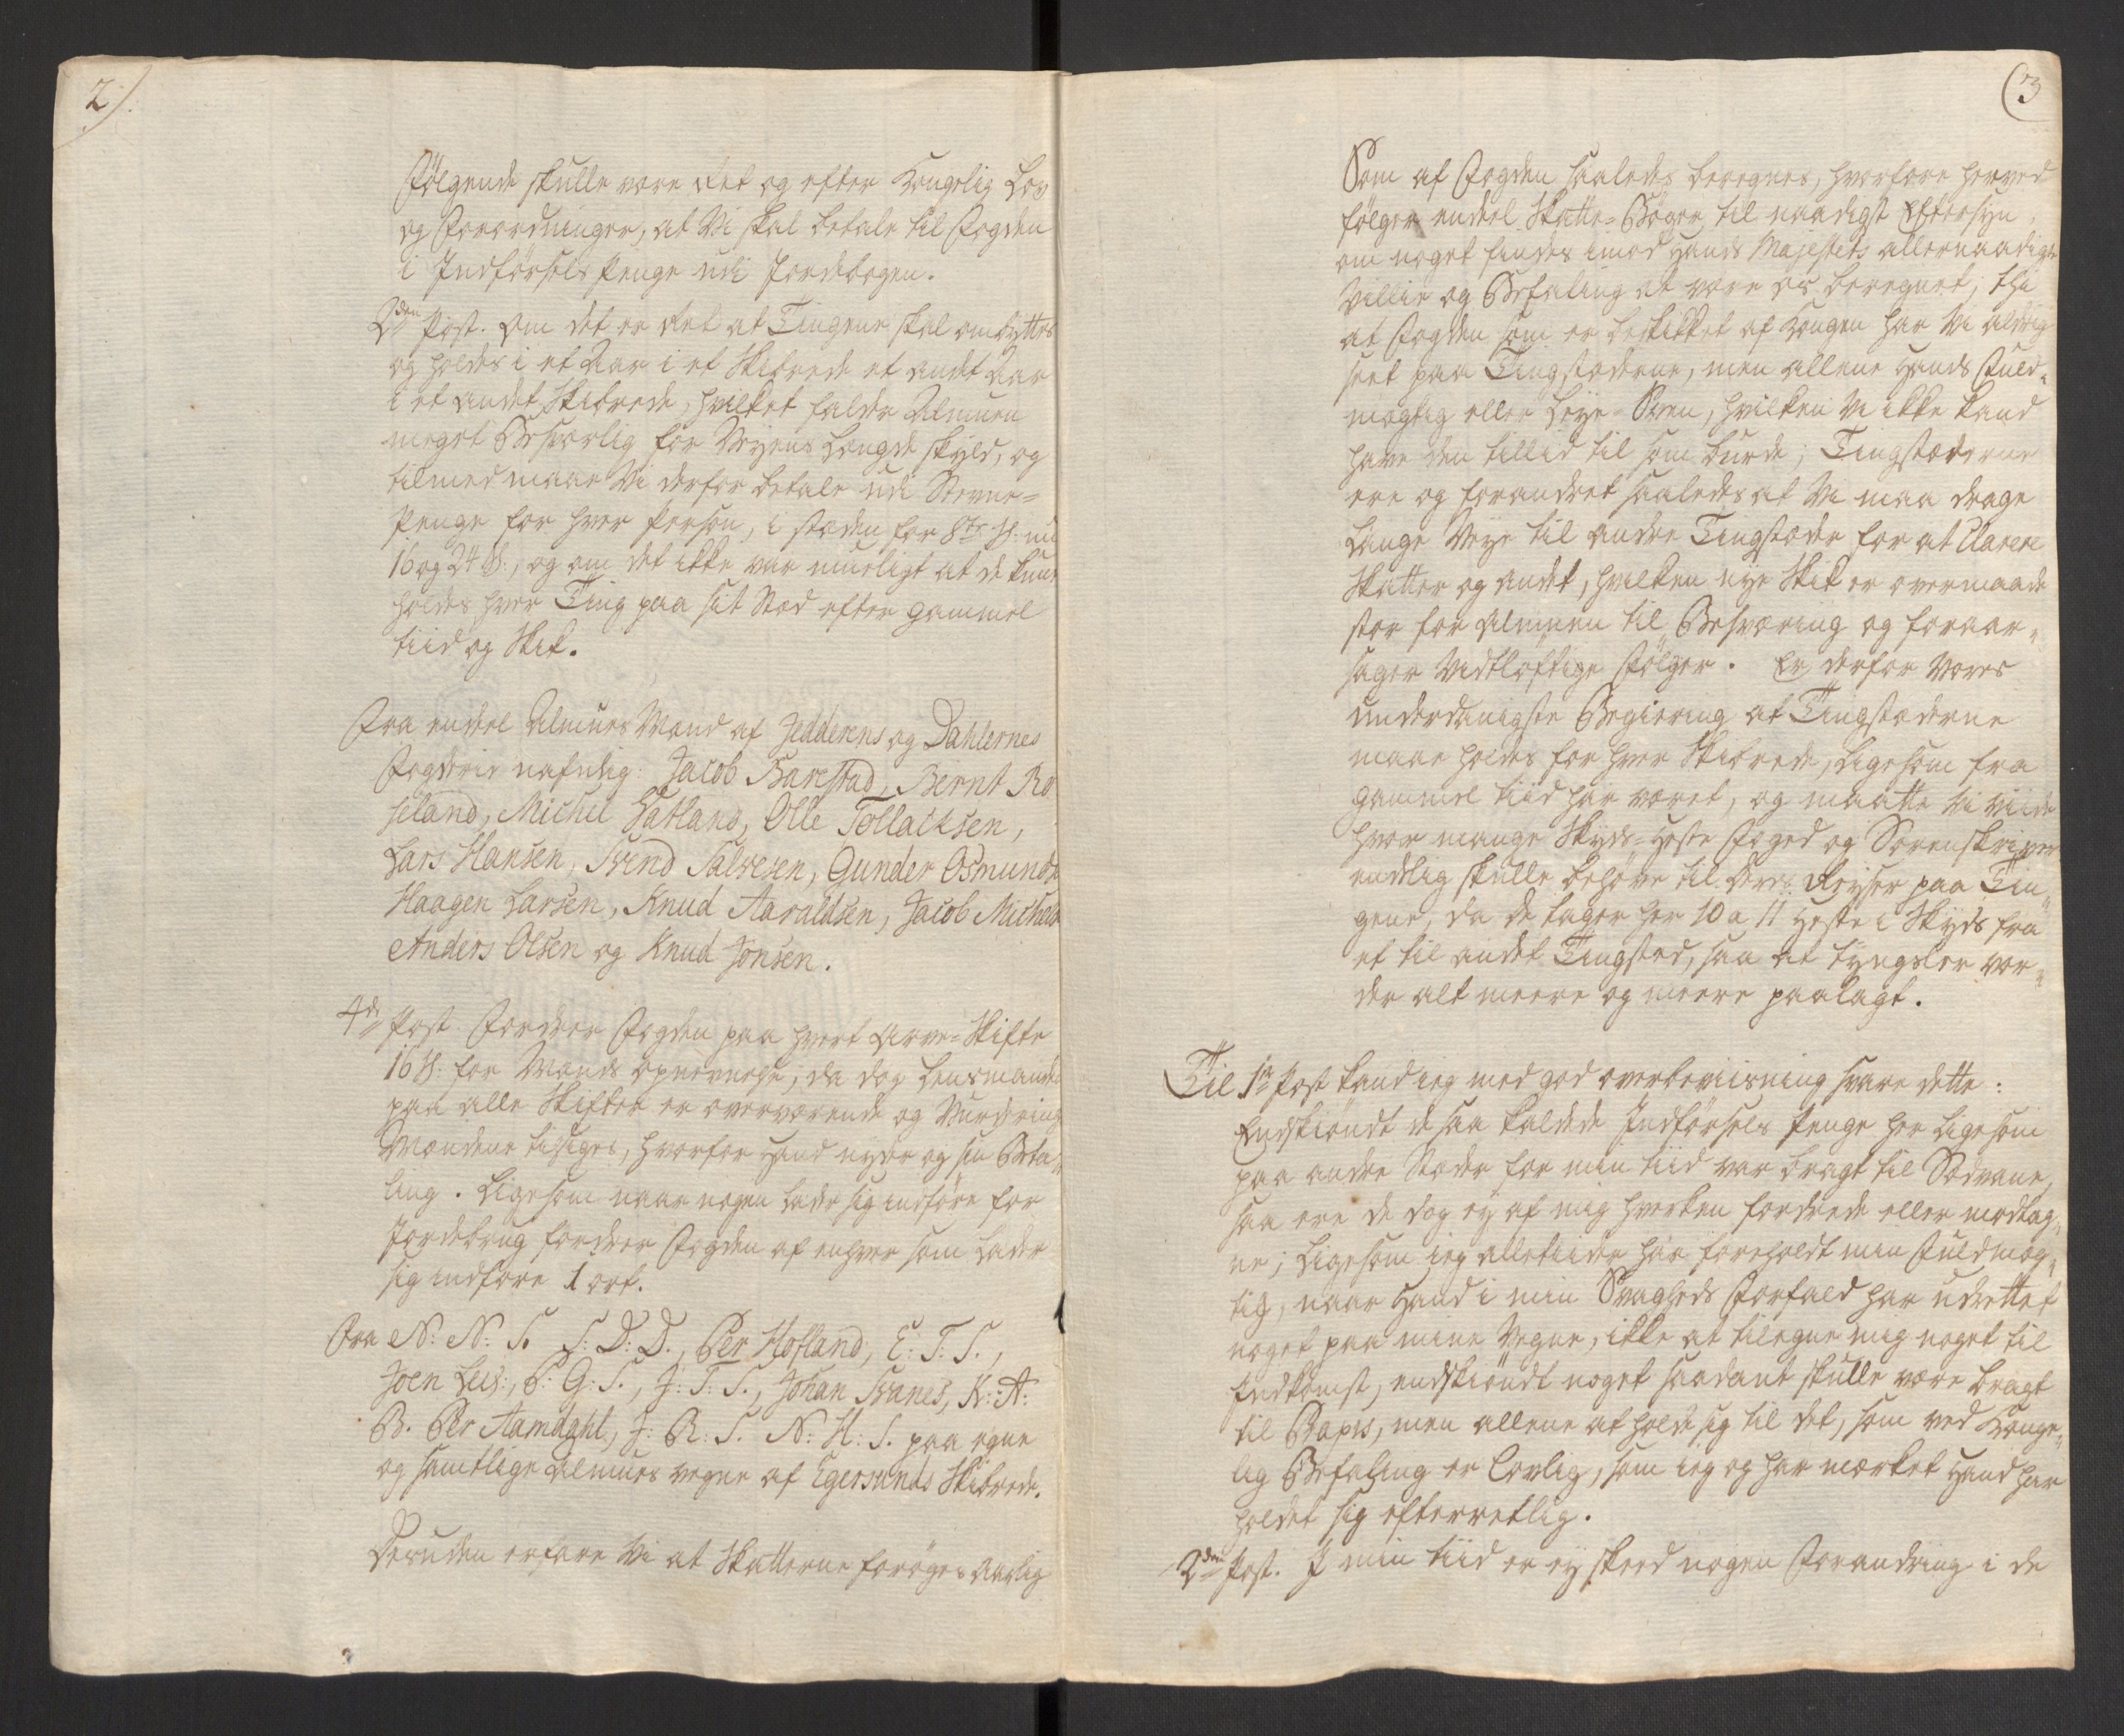 2)
Følgende skulle være Ret og efter Kongelig Lov
og Forordninger, at Vi skal betale til Fogden
i Indførsels Penge udi Jordebogen.
2den Post. Om det er Ret at Tingene skal ombyttes
og holdes i et Aar i et Skibrede et andet Aar
i et andet Skibrede, hvilket falder Almuen
meget Besværlig for Veyens Længde skyld, og
tilmed maae Vi derfor betale udi Stevne-
Penge for hver Person, i stæden for 8te ß: nu
16 og 24 ß:, og om det ikke var mueligt at de kunde
holdes hver Ting paa sit Stæd efter gammel
tiid og Skik.
Fra endeel Almues Mænd af Jedderens og Dahlernes
Fogderie nafnlig: Jacob Barestad, Bernt Ro
seland, Michel Hatland, Olle Tollacksen,
Lars Hansen, Svend Salvesen, Gunder Osmunds
Haagen Larsen, Knud Aaraldsen, Jacob Michels
Anders Olsen og Knud Jonsen.
4de Post. Fordrer Fogden paa hvert Arve-Skifte
16 ß: for Mænds opnevnelse, da dog Lensmanden
paa alle Skifter er overværende og Vurderings
Mændene tilsiges, hvorfor Hand nyder og sin Beta-
ling. Ligesom naar nogen Lader sig indføre for
Jordebrug fordrer Fogden af enhver som Lader
sig indføre 1 ort.
Fra N: N: S. S: D: D., Per Hofland, E: T: S.,
Joen Leid:, P: G: S., J: T: S., Johan Svanes, K: A:
B. Per Aamdahl, J: R: S. N: H: S. paa egne
og samtlige Almues vegne af Egersunds Skibrede.
Desuden erfare Vi at Skatterne forøges Aarlig
(3
Som af Fogden saaledes beregnes, hvorfore herved
følger endeel Skatte-Bøger til naadigst Eftersyn,
om noget findes imod Hands Majestets allernaadigste
Villie og Befaling at være os beregnet; thi
at Fogden som er beskikket af Kongen har Vi aldrig
seet paa Tingstæderne, men allene Hands Fuld-
mægtig eller Leye-Svend, hvilken Vi ikke kand
have den tillid til som burde; Tingstæderne
ere og forandret saaledes at Vi maa drage
Lange Veye til andre Tingstæder for at Clarere
Skatter og andet, hvilken nye Skik er overmaade
stor for Almuen til Besværing og foraar-
sager Vidtløftige Følger. Er derfor Vores
underdanigste Begiering at Tingstæderne
maae holdes for hver Skibrede, Ligesom fra
gammel tiid har været, og maatte Vi viide
hvor mange Skyds-Heste Foged og Sorenskriver
endelig skulle behøve til deres Reyser paa Tin-
gene, da de tager her 10 a 11 Heste i Skyds fra
et til andet Tingsted, saa at tyngsler vor-
der alt meere og meere paalagt.
Til 1ste Post kand ieg med god overbeviisning svare dette:
Endskiøndt de saa kaldede Indførsels Penge her Ligesom
paa andre Stæder for min tiid var bragt til Sædvane,
saa ere de dog ey af mig hverken fordrede eller modtag-
ne; Ligesom ieg alletiider har foreholdt min Fuldmæg-
tig, naar Hand i min Svagheds Forfald har udrettet
noget paa mine Vegne, ikke at tilegne mig noget til
Indkomst, endskiøndt noget saadant skulle være bragt
til Papir, men allene at holde sig til det, som ved Konge-
lig Befaling er Lovlig, som ieg og har mærket Hand har
holdet sig efterretlig.
2den Post. I min tiid er ey skeed nogen Forandring i de